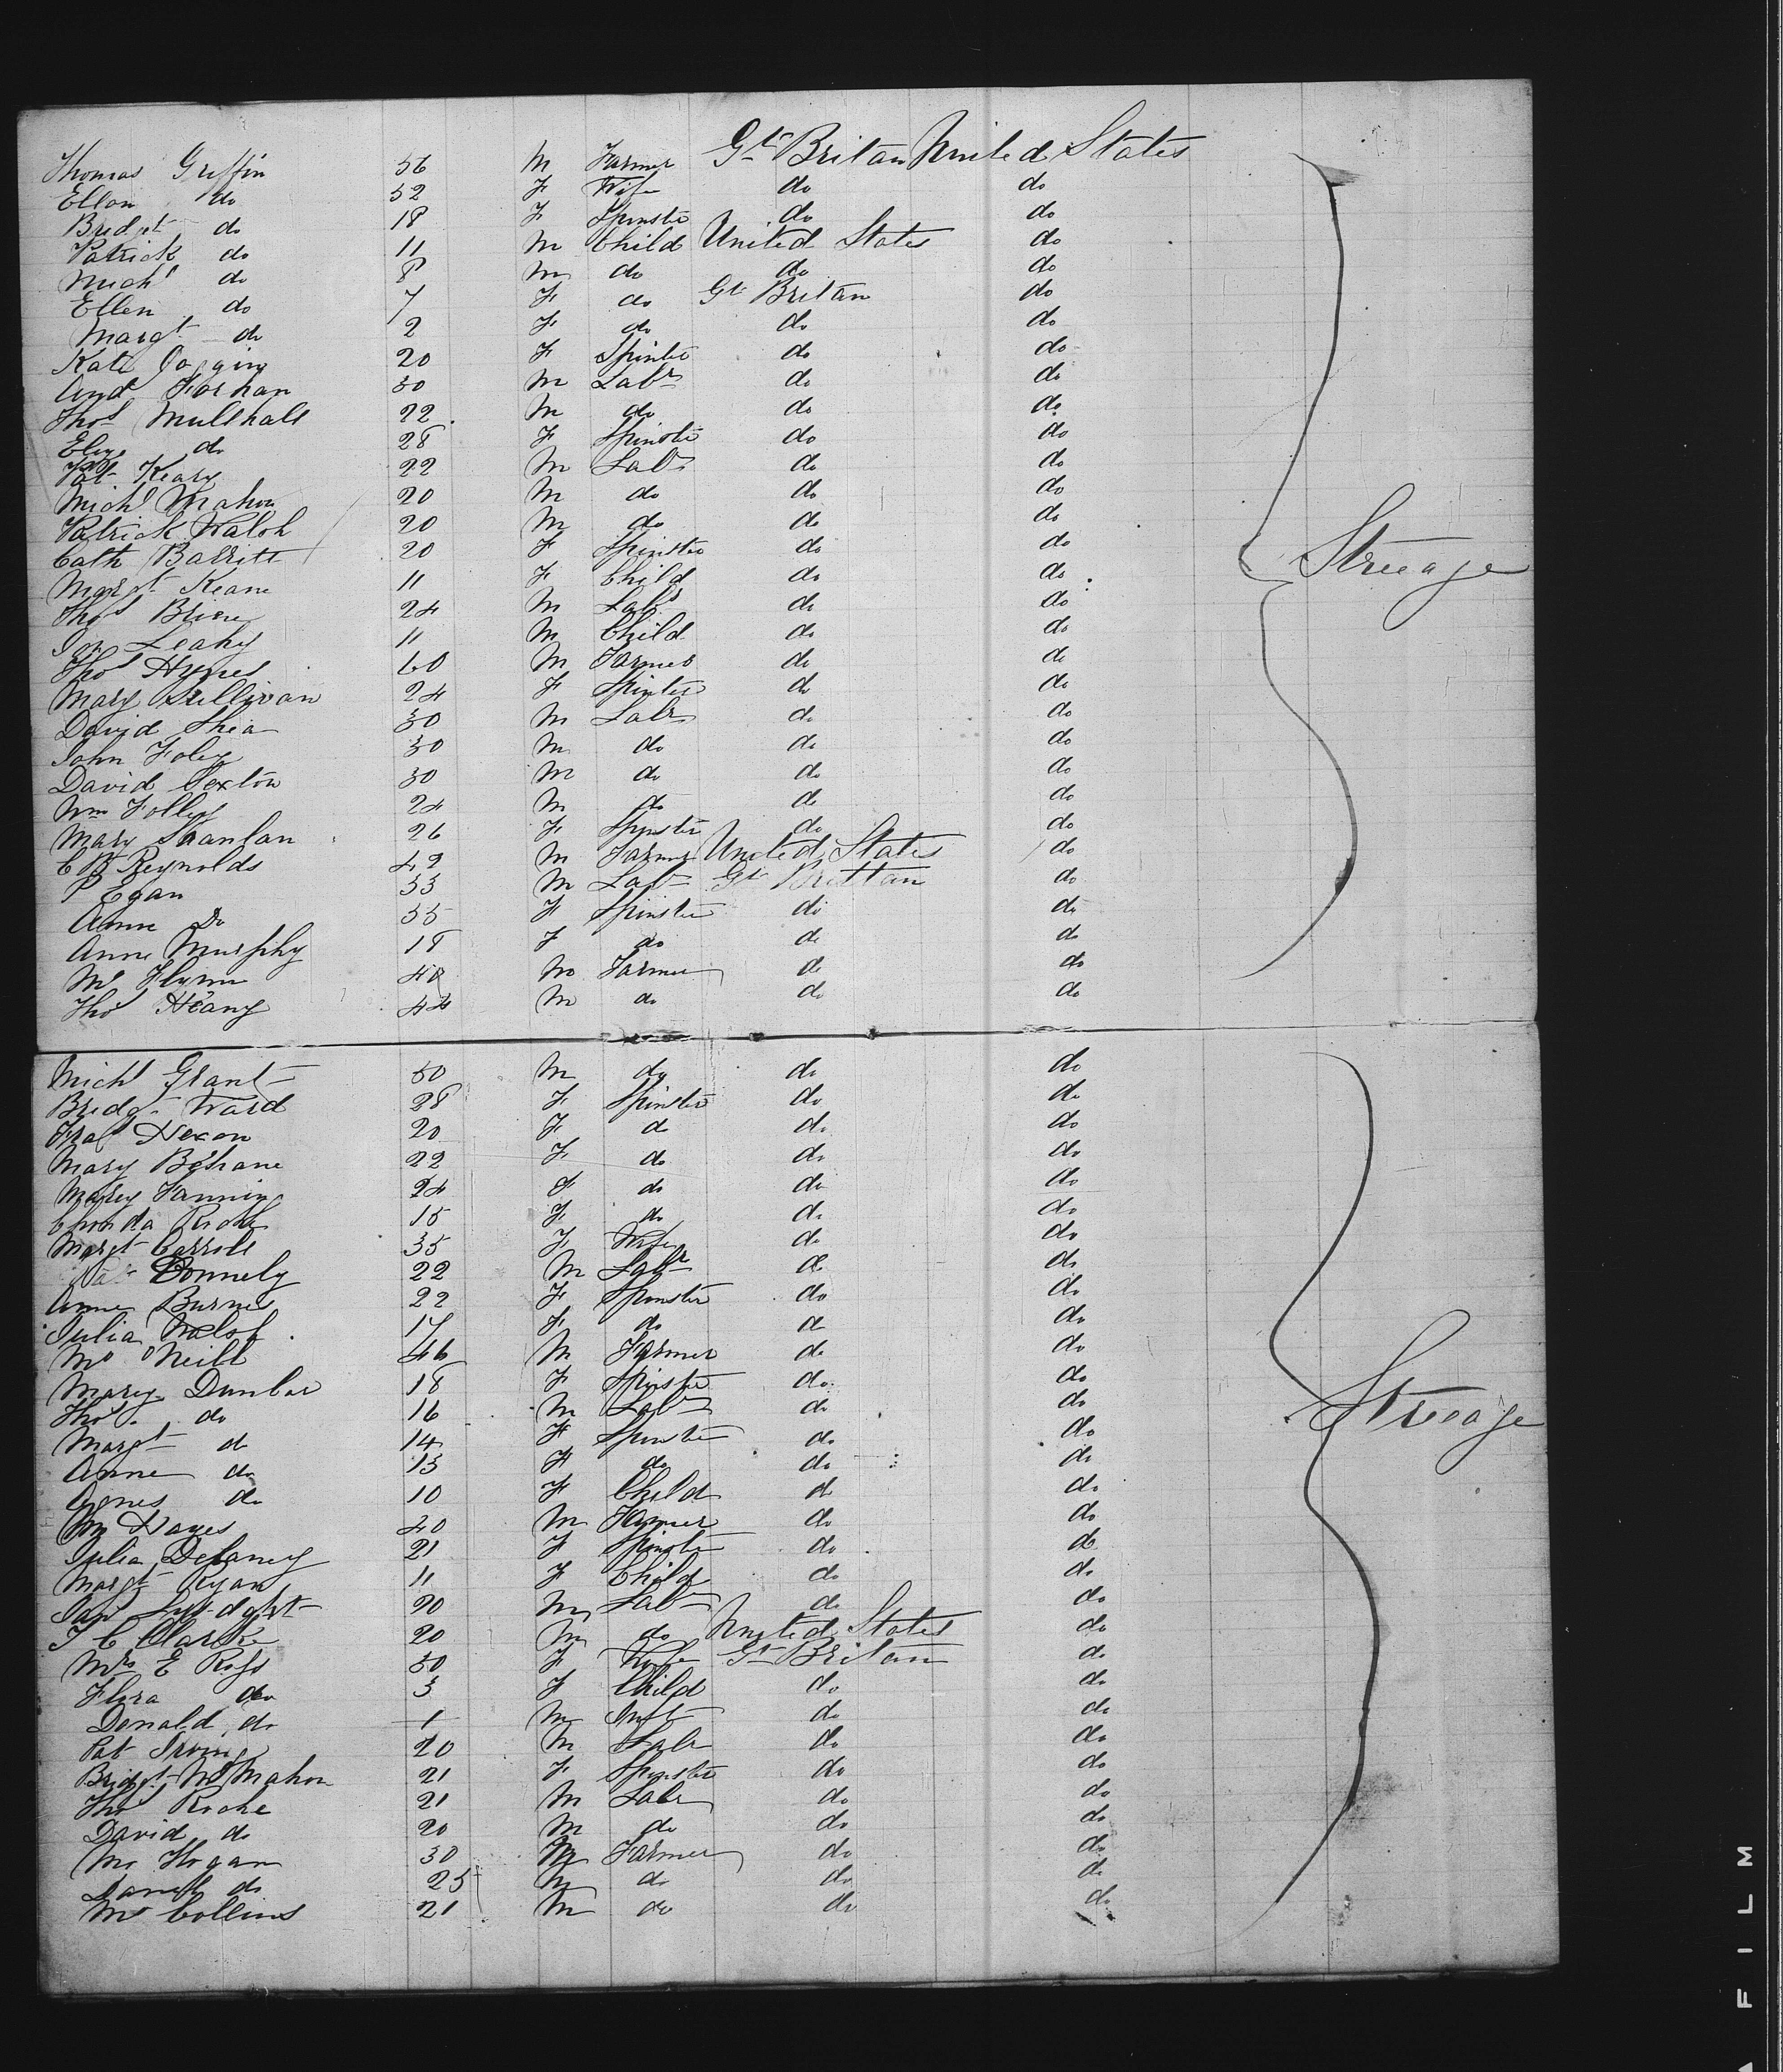 Thomas Griffin 56 M Farmer Gt Britan United States
Ellen do 52 F Wife do do
Bredgt do 18 F Spinster do do
Patrick do 11 M Child United States do
Michl do 8 M do do do
Ellen do 7 F do Gt Britan do
Margt do 2 F do do do
Kate 20 F Spinster do do
And Forhan 30 M Labr do do
Thos Mullhall 22 M do do do
Eliza do 28 F Spinster do do
Pat Keary 22 M Labr do do
Michl Mahon 20 M do do do
Patrick Walsh 20 M do do do
Cath Barritt 20 F Spinster do do
Margt Keane 11 F Child do do
Thos Brien 24 M Labr do do
Jon Leahy 11 M Child do do
Thos Hynes 60 M Farmer do do
Mary Sullivan 24 F Spinter do do
David Shea 30 M Labr do do
John Foley 30 M do do do
David Sexton 30 M do do do
Wm Folley 24 M do do do
Mary Scanlan 26 F Spinster do do
C B Reynolds 42 M Farmer United States do
P Egan 33 M Labr Gt Brittan do
Anne Do 35 F Spinster do do
Anne Murphy 18 F do do do
M Flynn 40 M Farmer do do
Thos Heany 44 M do do do
Streage
Michl Grant 50 M do do do
Bridgt Ward 28 F Spinster do do
20 F do do do
Mary Behane 22 F do do do
Marey Fanning 24 F do do do
Roche 15 F do do do
Margt Carroll 35 F Wife do do
Pat Donnely 22 M Labr do do
Anne Burnes 22 F Spinster do do
Julia Walsh 17 F do do do
M O'Neill 46 M Farmer do do
Marey Dunbar 18 F Spinster do do
Thos do 16 M Labr do do
Margt do 14 F Spinster do do
Anne do 13 F do do do
Agnes do 10 F Child do do
M Hayes 40 M Farmer do do
Julia Delaney 21 F Spinster do do
Margt Ryan 11 F Child do do
20 M Labr do do
J C Clarke 20 M do United States do
Mrs E Ross 30 F Wife Gt Britan do
Flora do 3 F Child do do
Donald do 1 M Inft do do
Pat Irving 20 M Labr do do
Bridgt McMahon 21 F Spinster do do
Thos Roche 21 M Labr do do
David do 20 M do do do
M Hogan 30 M Farmer do do
Daniel do 25 M do do do
M Collins 21 M do do do
Streage
FILM